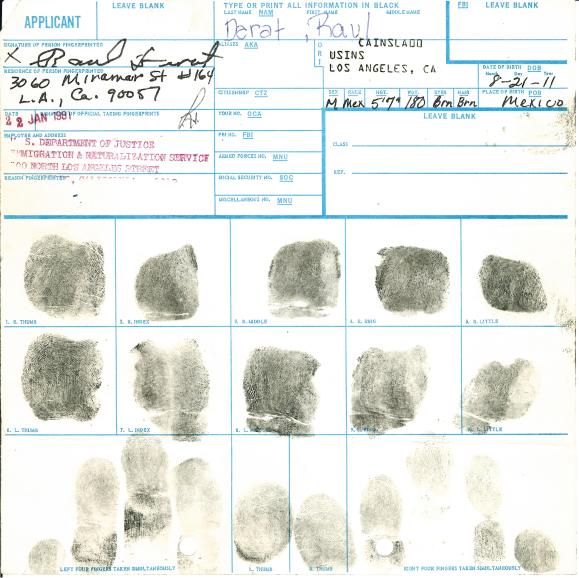 APPLICANT
LEAVE BLANK
TYPE OR PRINT ALL INFORMATION IN BLACK
LAST NAME NAM FIRST NAME MIDDLE NAME
FBI
LEAVE BLANK
Derat, Raul
SIGNATURE OF PERSON FINGERPRINTED
ALIASES AKA
ORI
CAINSLA00
USINS
LOS ANGELES, CA
X
RESIDENCE OF PERSON FINGERPRINTED
3060 Miramar St #164
L.A., Ca. 90057
DATE OF BIRTH DOB
Month Day Year
8-21-11
CITIZENSHIP CTZ
SEX RACE HGT. WGT. EYES HAIR
M Mex 5'7" 180 Brn Brn
PLACE OF BIRTH POB
Mexico
DATE
22 JAN 1981
OFFICIAL TAKING FINGERPRINTS
YOUR NO. OCA
LEAVE BLANK
EMPLOYER AND ADDRESS
S. DEPARTMENT OF JUSTICE
IMMIGRATION & NATURALIZATION SERVICE
NORTH LOS ANGELES STREET
FBI NO. FBI
ARMED FORCES NO. MNU
CLASS
REF.
REASON FINGERPRINTED
SOCIAL SECURITY NO. SOC
MISCELLANEOUS NO. MNU
1. R. THUMB
2. R. INDEX
3. R. MIDDLE
4. R. RING
5. R. LITTLE
6. L. THUMB
7. L. INDEX
8. L. MIDDLE
9. L. RING
10. L. LITTLE
LEFT FOUR FINGERS TAKEN SIMULTANEOUSLY
L. THUMB
R. THUMB
RIGHT FOUR FINGERS TAKEN SIMULTANEOUSLY